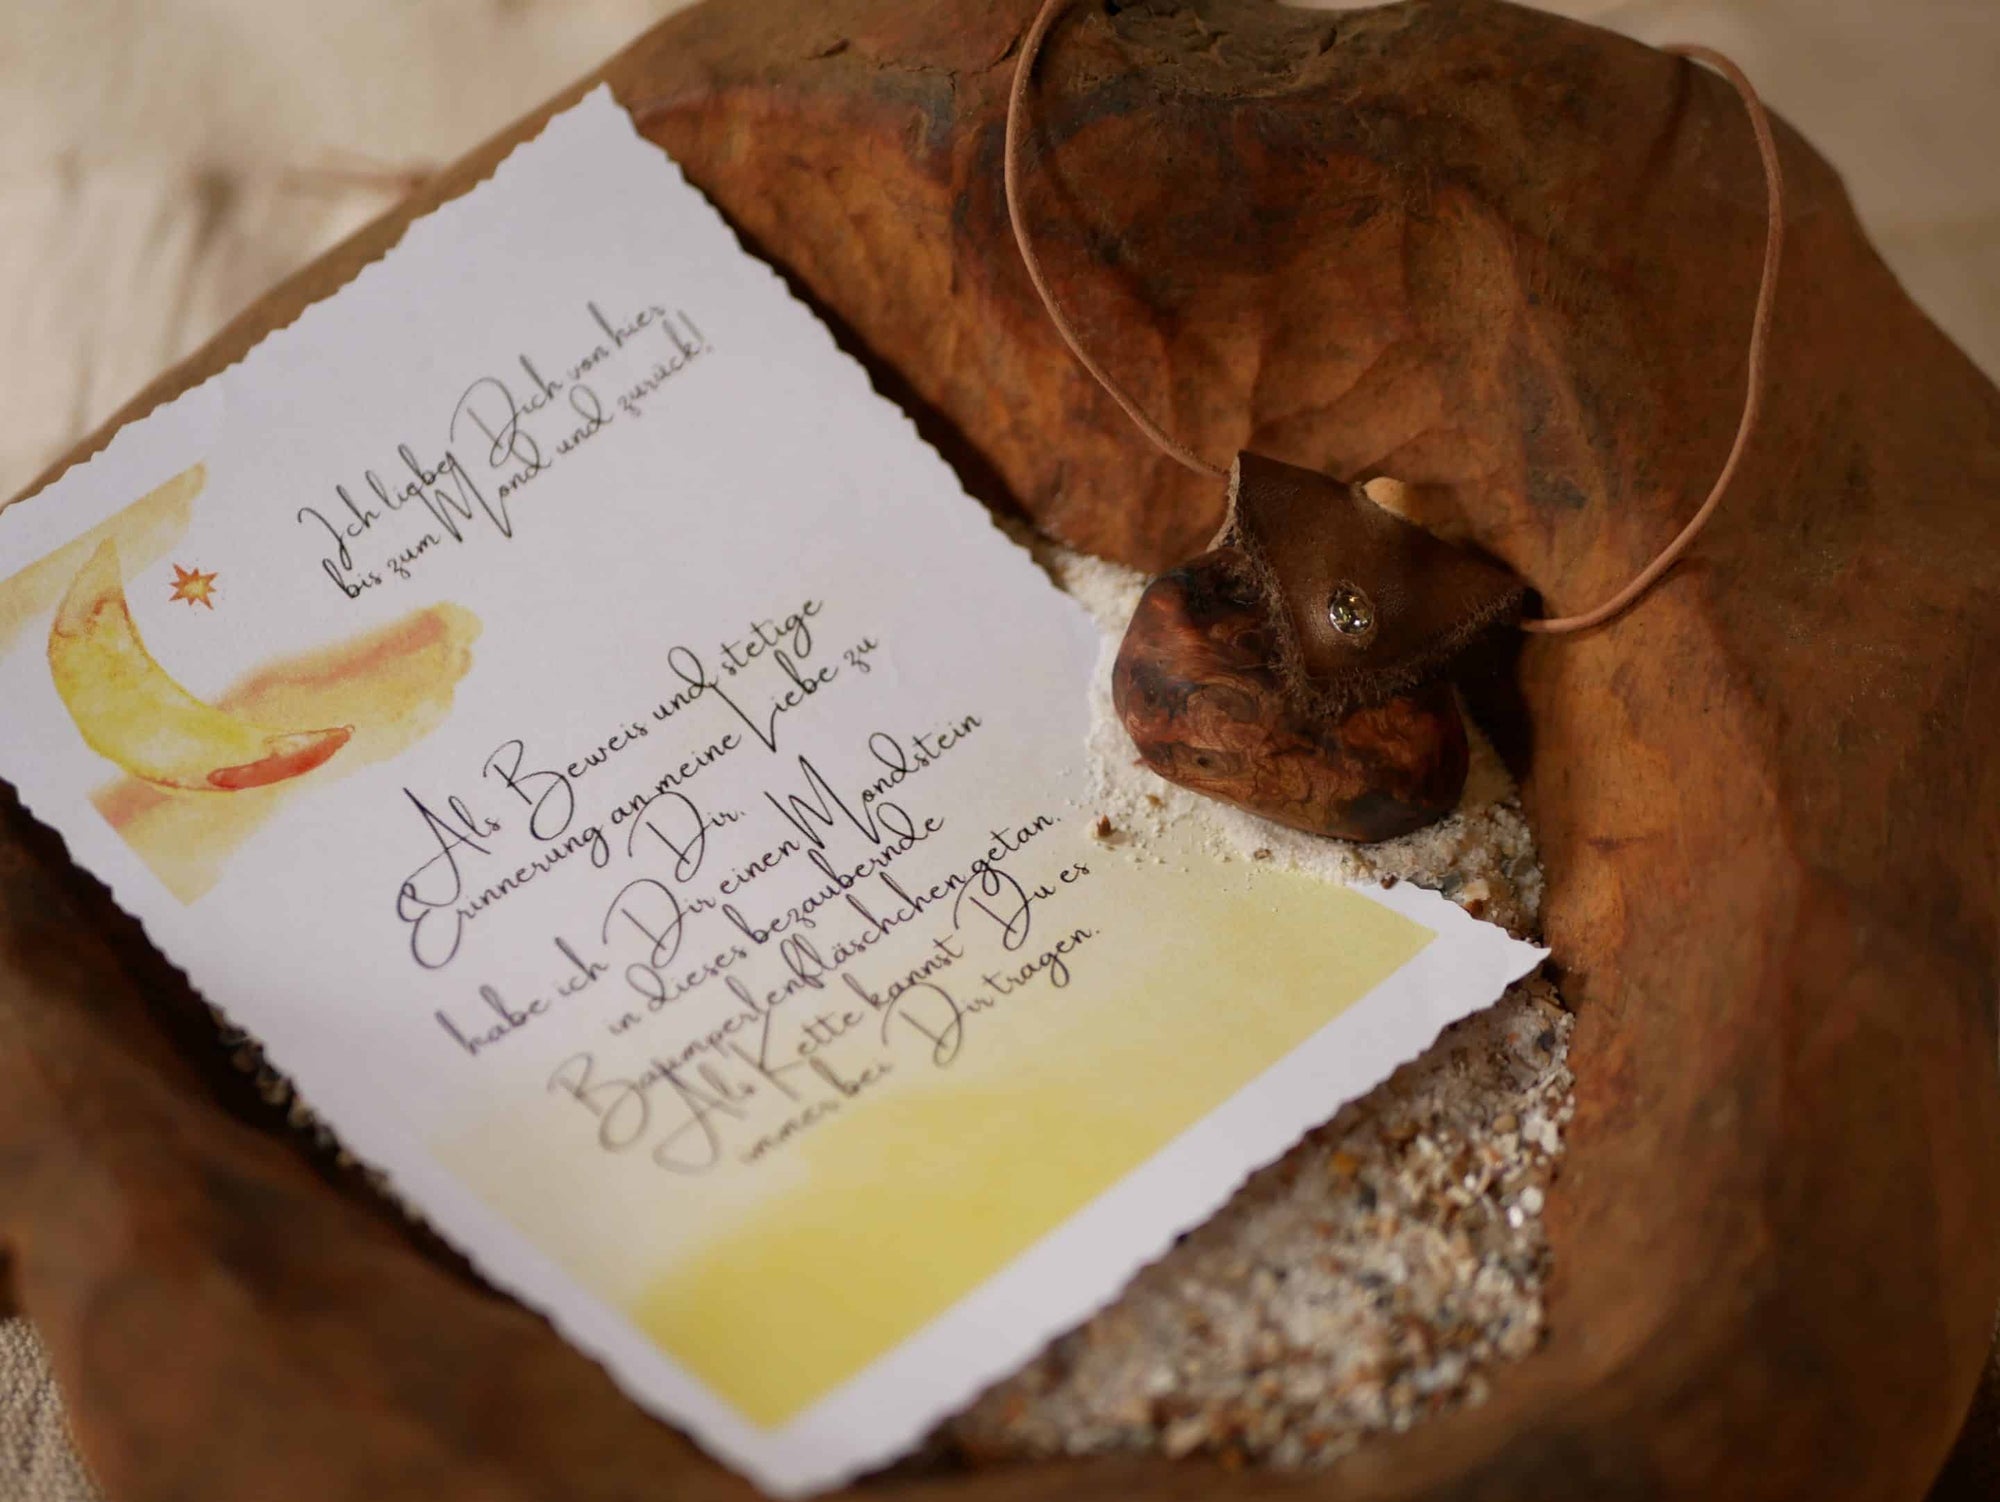 Ich liebe Dich von hier
bis zum Mond und zurück!
Als Beweis und stetige
Erinnerung an meine Liebe zu
Dir.
habe ich Dir einen Mondstein
in dieses bezaubernde
Baumperlenfläschchen getan.
Als Kette kannst Du es
immer bei Dir tragen.